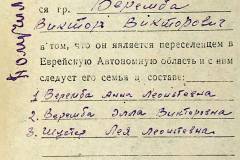 ся гр. Веремба
Виктор Вікторович
в том, что он является переселенцем в
Еврейскую Автономную область и с ним
следует его семья в составе:
1 Веремба Анна Леонтьевна
2. Веремба Элла Викторовна
3. Шустея Лея Леонтевна